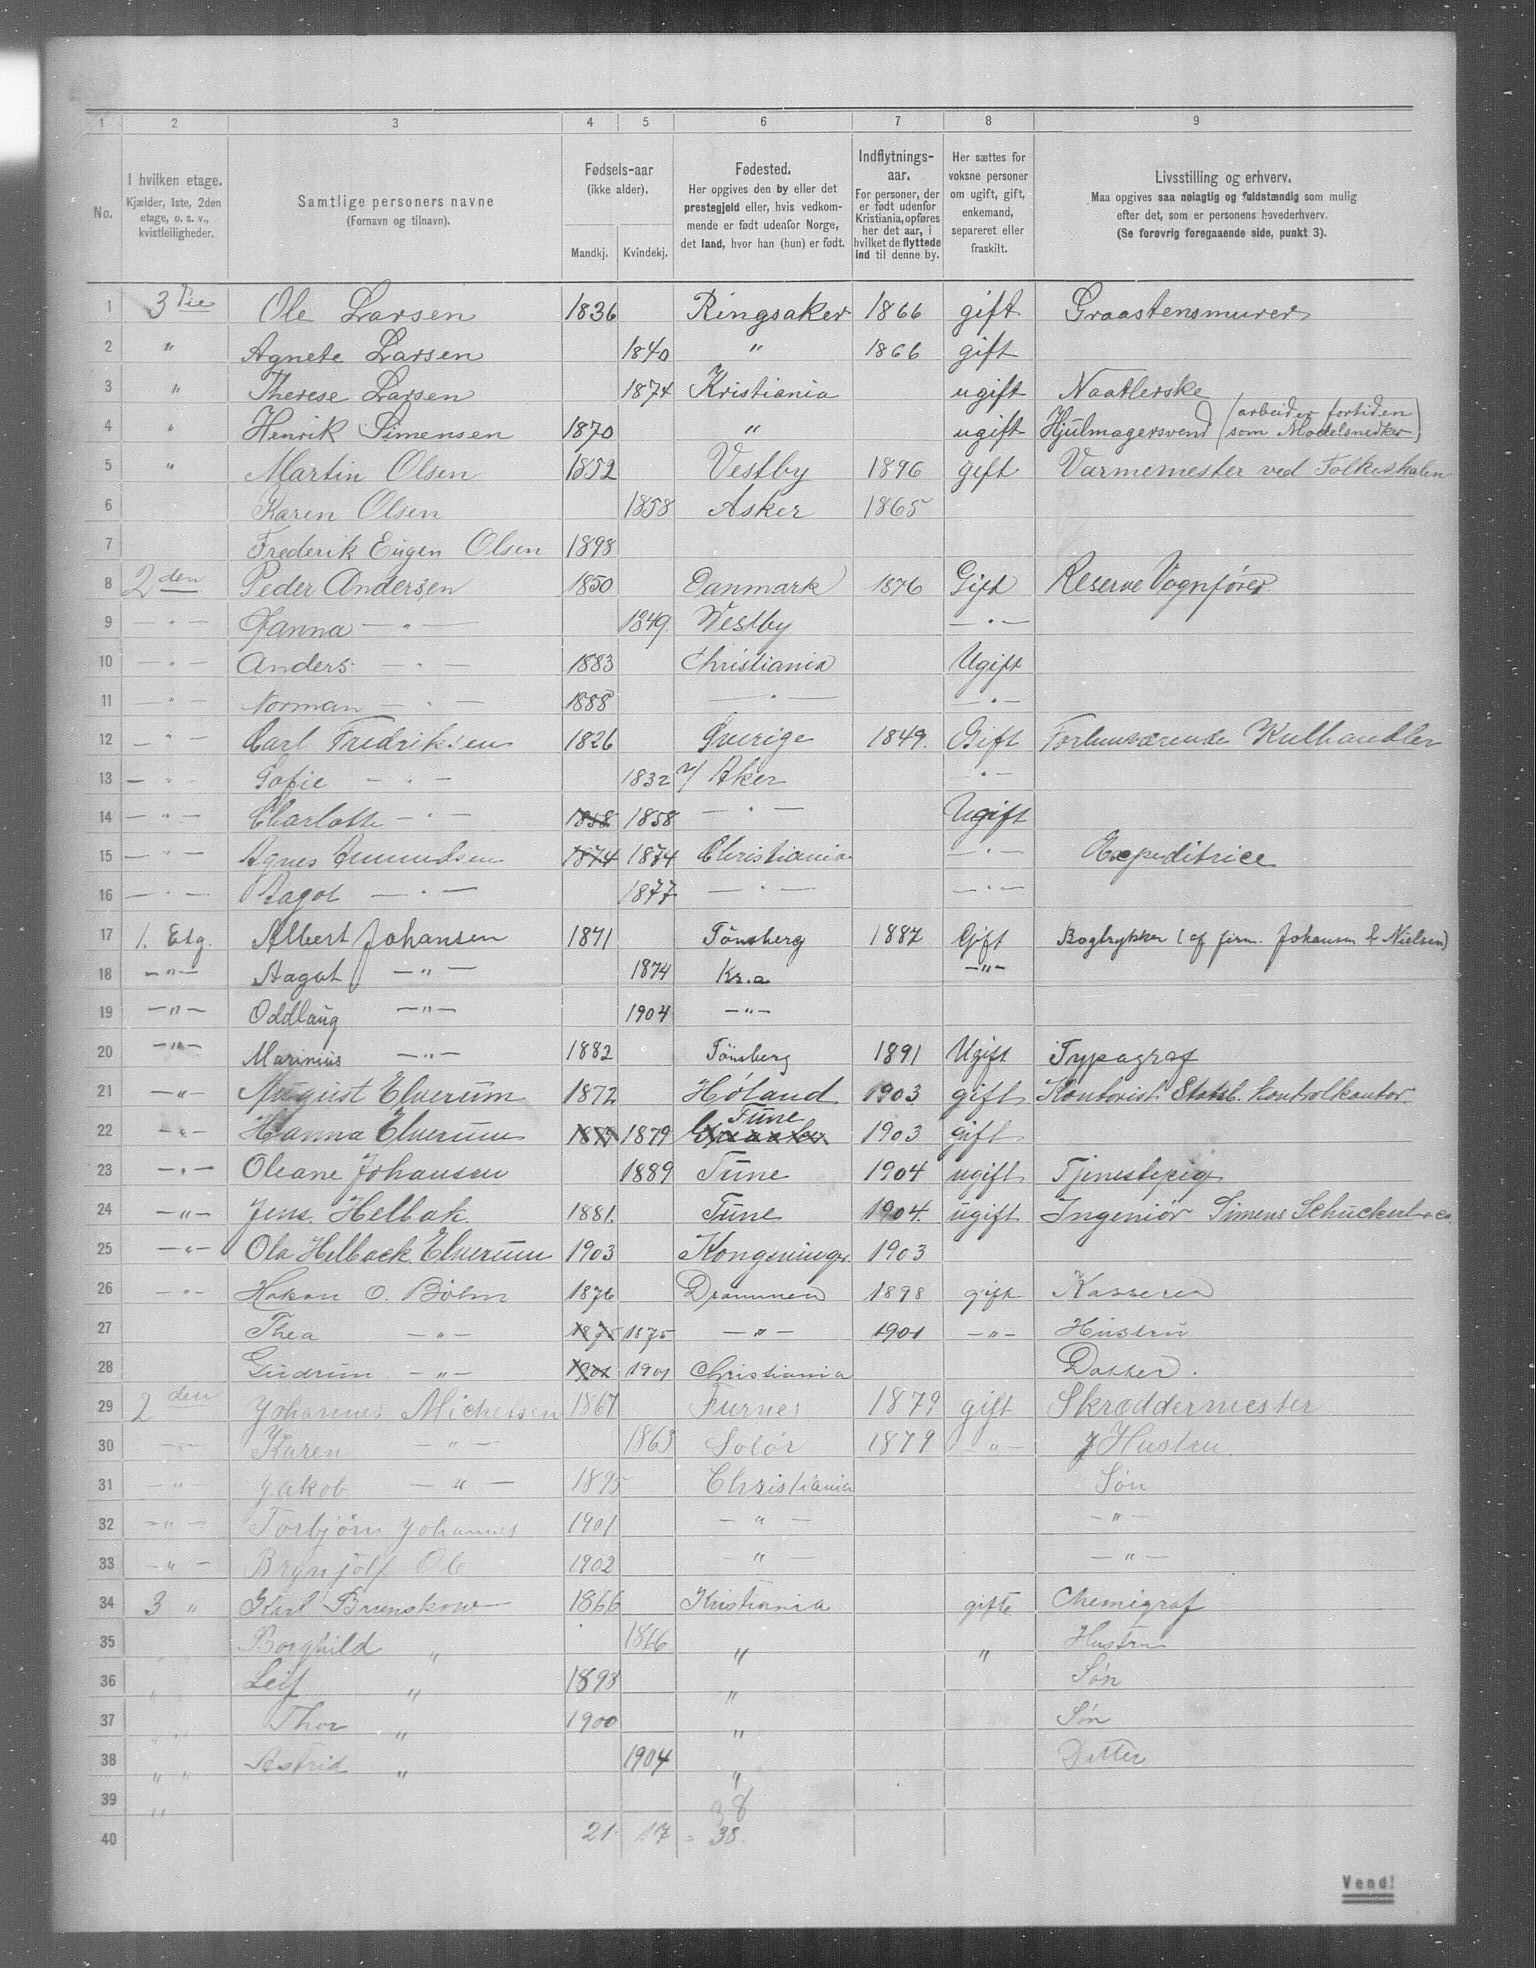 1 2 3 4 5 6 7 8 9
No.
I hvilken etage.
Kjælder, 1ste, 2den
etage, o. s. v.,
kvistleiligheder.
Samtlige personers navne
(Fornavn og tilnavn).
Fødsels-aar
(ikke alder).
Mandkj. Kvindekj.
Fødested.
Her opgives den by eller det
prestegjeld eller, hvis vedkom-
mende er født udenfor Norge,
det land, hvor han (hun) er født.
Indflytnings-
aar.
For personer, der
er født udenfor
Kristiania, opføres
her det aar, i
hvilket de flyttede
ind til denne by.
Her sættes for
voksne personer
om ugift, gift,
enkemand,
separeret eller
fraskilt.
Livsstilling og erhverv.
Maa opgives saa nøiagtig og fuldstændig som mulig
efter det, som er personens hovederhverv.
(Se forøvrig foregaaende side, punkt 3).
1 3die Ole Larsen 1836 Ringsaker 1866 gift Graastensmurer
2 " Agnete Larsen 1840 " 1866 gift
3 " Therese Larsen 1874 Kristiania ugift Naatlerske
4 " Henrik Simensen 1870 " ugift Hjulmagersvend (arbeider fortiden som Modelsnedker)
5 " Martin Olsen 1852 Vestby 1896 gift Varmemester ved Folkeskolen
6 Karen Olsen 1858 Asker 1865
7 Frederik Eugen Olsen 1898
8 2den Peder Andersen 1850 Danmark 1876 Gift Reserve Vognfører
9 — " — Hanna — " — 1849. Vestby — " —
10 — " — Anders — " — 1883 Christiania Ugift
11 — " — Norman — " — 1888 — " — — " —
12 — " — Carl Fredriksen 1826 Sverige 1849. Gift Forhenværende Kulhandler
13 — " Sofie — " — 1832 V/ Aker — " —
14 — " — Charlotte — " — 1858 1858 — " — Ugift
15 — " — Agnes Amundsen 1874 1874 Christiania — " — Expeditrice
16 — " — Aagot — " — 1877 — " — — " —
17 1. Etg. Albert Johansen 1871 Tönsberg 1887 Gift Bogtrykker (af firm. Johansen & Nielsen)
18 — " — Aagot — " — 1874 Kr.a — " —
19 — " — Oddlaug — " — 1904 — " —
20 — " — Marinius — " — 1882 Tönsberg 1891 Ugift Typograf
21 — " — August Elverum 1872 Høland 1903 gift Kontorist Statsb. kontrolkontor
22 — " — Hanna Elverum 1879 Tune 1903 gift
23 — " — Oleane Johansen 1889 Tune 1904 ugift Tjenestepig
24 — " — Jens Helbak. 1881. Tune 1904. ugift Ingeniør Simens Schuckert & co.
25 — " — Ola Helbaek Elverum 1903 Kongsvinger 1903
26 — " — Hakon O. Böhm 1876 Drammen 1898 gift Kasserer
27 Thea — " — 1875 1875 — " — 1901 — " — Hustru
28 Gudrun — " — 1901 1901 Christiania Datter.
29 2den Johannes Michelsen 1867 Furnes 1879 gift Skræddermester
30 — " — Karen — " — 1863 Solør 1879 " — Hustru
31 — " — Jakob — " — 1895 Christiania Søn
32 — " — Torbjørn Johannes 1901 — " — — " —
33 — " — Brynjolf Ole 1902 — " — — " —
34 3 " Karl Brunskow 1866 Kristiania gifte Chemigraf
35 " " Borghild " 1866 " " Hustru
36 " " Leif " 1898 " Søn
37 " " Thor " 1900 " Søn
38 " " Astrid " 1904 " Datter
39 " 38
40 21. 17 = 38.
Vend!